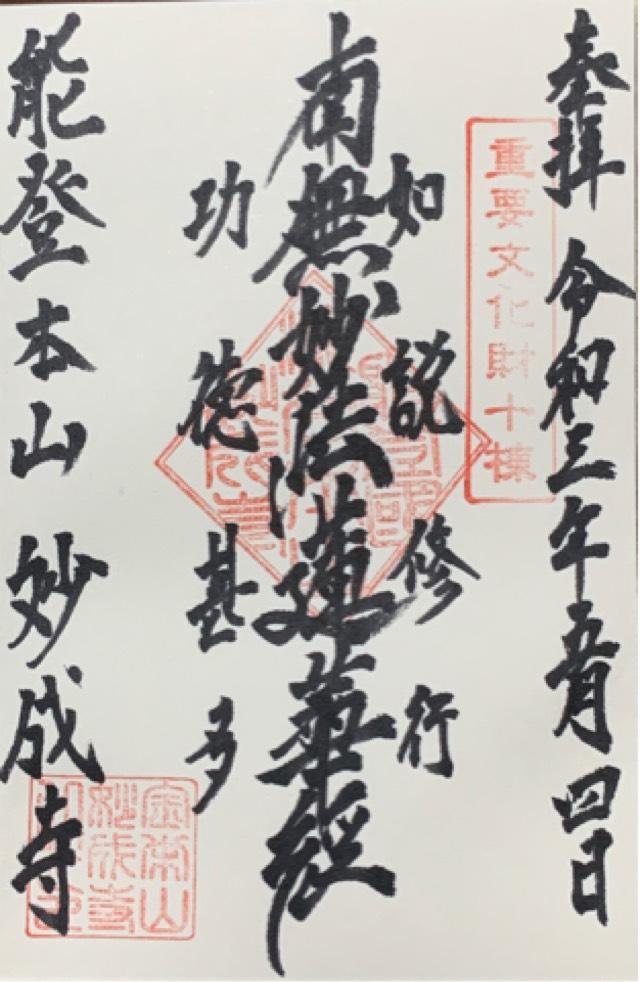 奉拝 令和三年五月四日
重要文化財十棟
如説修行
南無妙法蓮華経
功徳甚多
能登本山 妙成寺
金栄山
妙成寺